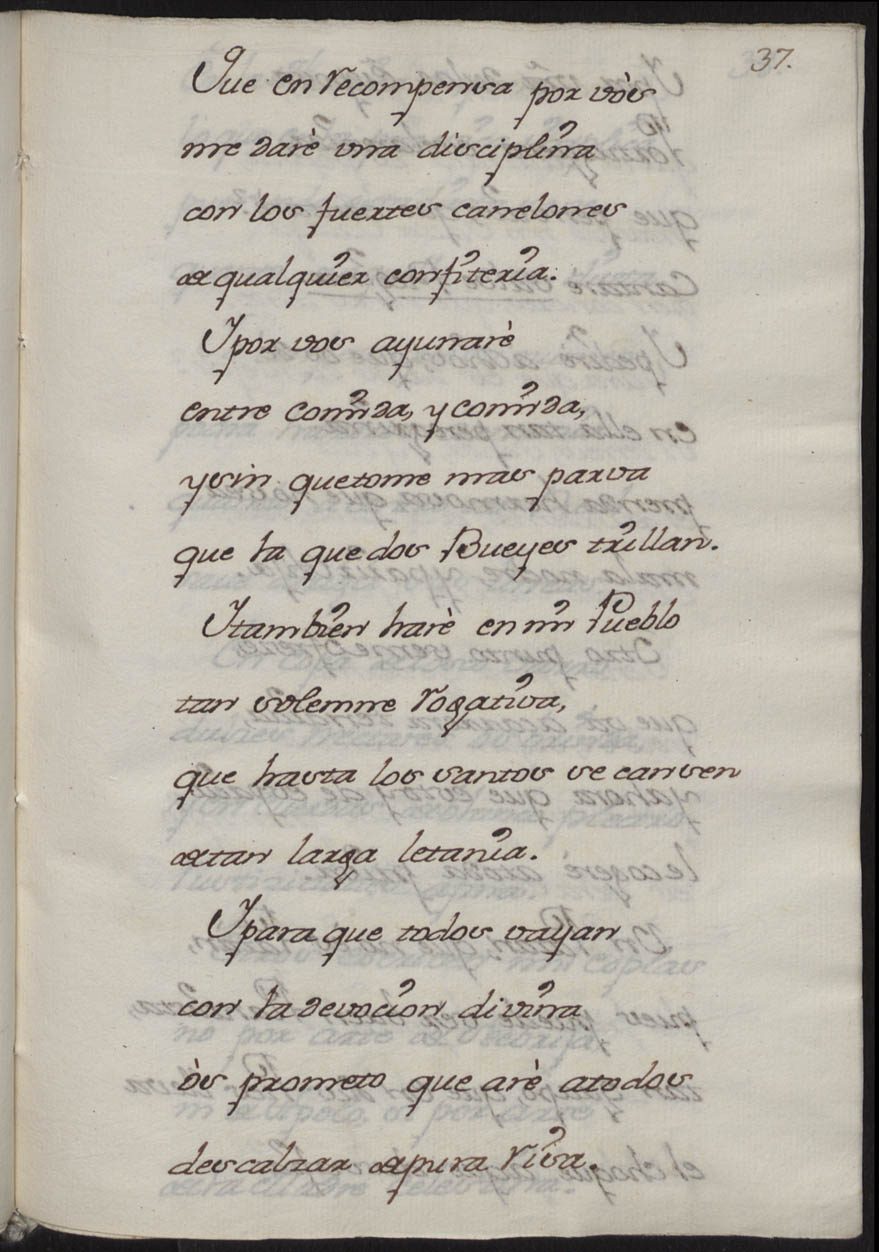 37.
Que en recompensa por vòs
me darè vna disciplina
con los fuertes canelones
de qualquier confiteria.
I por vos ayunarè
entre comida, y comida,
y sin que tome mas parva
que la que dos Bueyes trillan.
I tambien harè en mi Pueblo
tan solemne rogativa,
que hasta los santos se cansen
de tan larga letania.
I para que todos vayan
con la devocion divina
òs prometo que arè a todos
descalzar de pura risa.